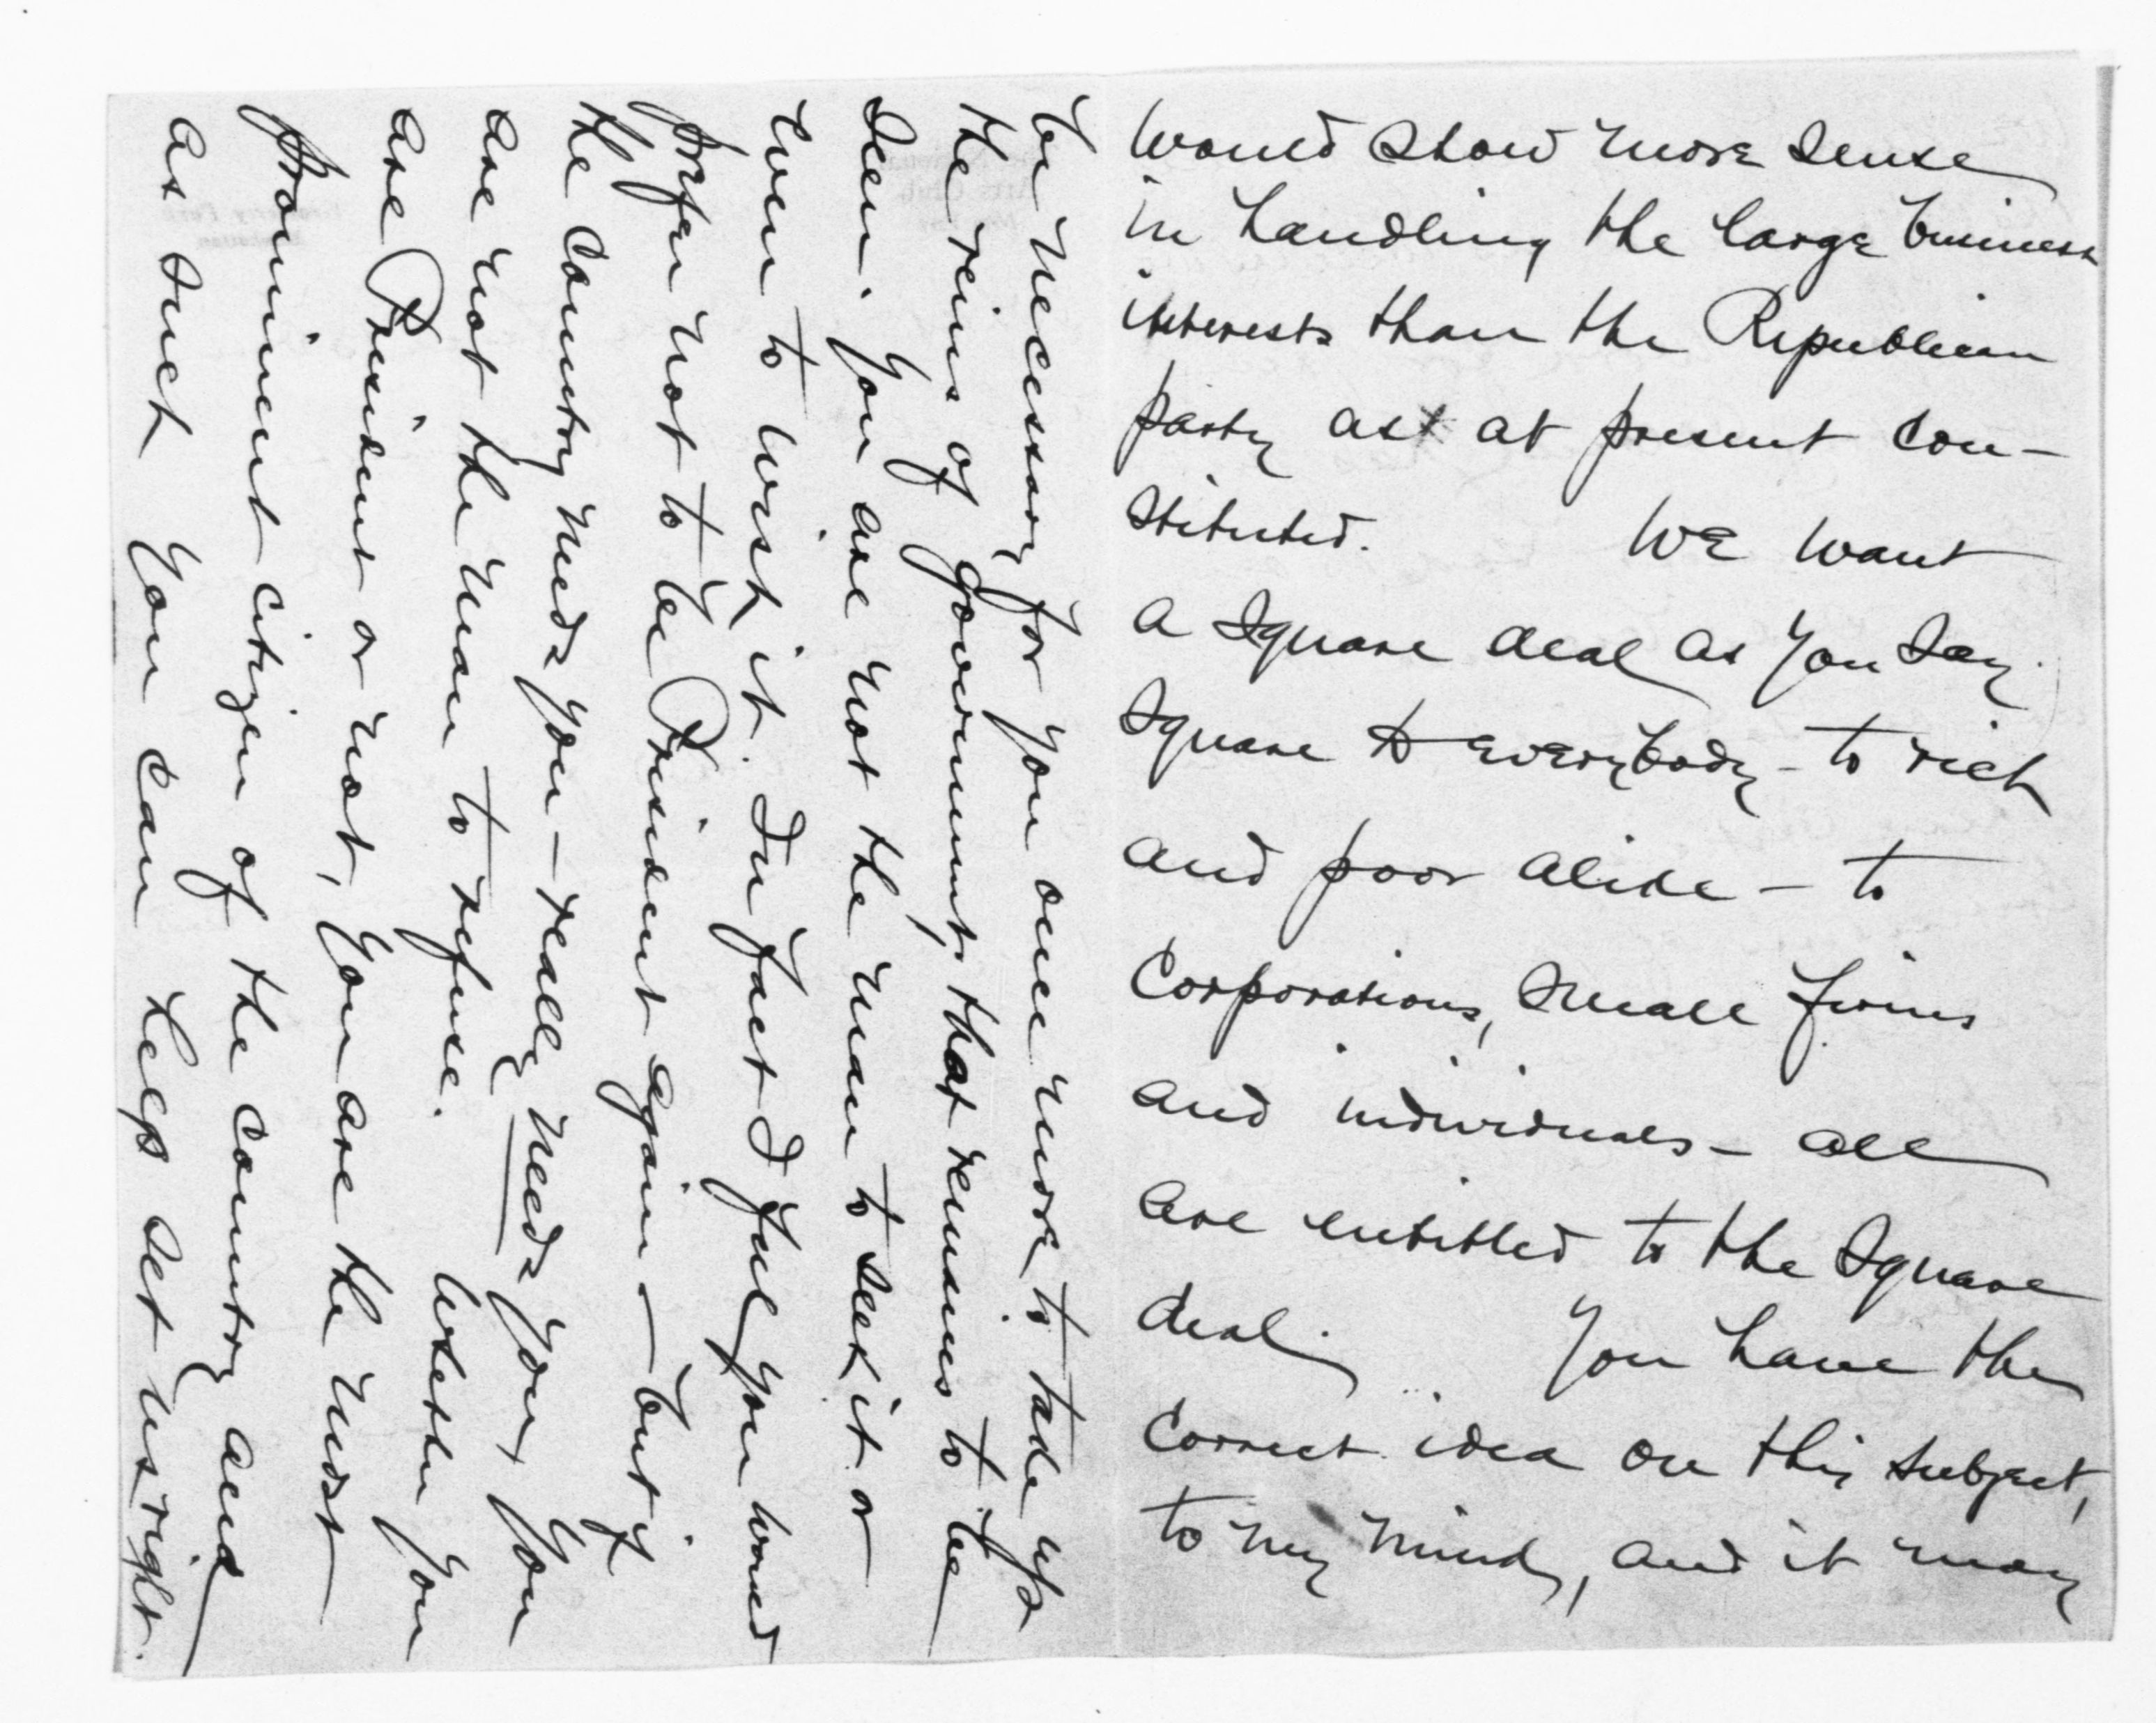 would show more sense
in handling the large business
interests than the Republican
party as at present con-
stituted. We want
a square deal as you say.
Square to everybody - to rich
and poor alike - to
Corporations, small firms
and individuals - all
are entitled to the square
deal. You have the
correct idea on this subject,
to my mind, and it may
be necessary for you once more to take up
the reins of government, that remains to be
seen. You are not the man to seek it or
even to wish it. In fact I feel you would
prefer not to be President again - but if
the country needs you - really needs you, you
are not the man to refuse. Whether you
are President or not, you are the most
prominent citizen of the country and
as such you can help set us right.